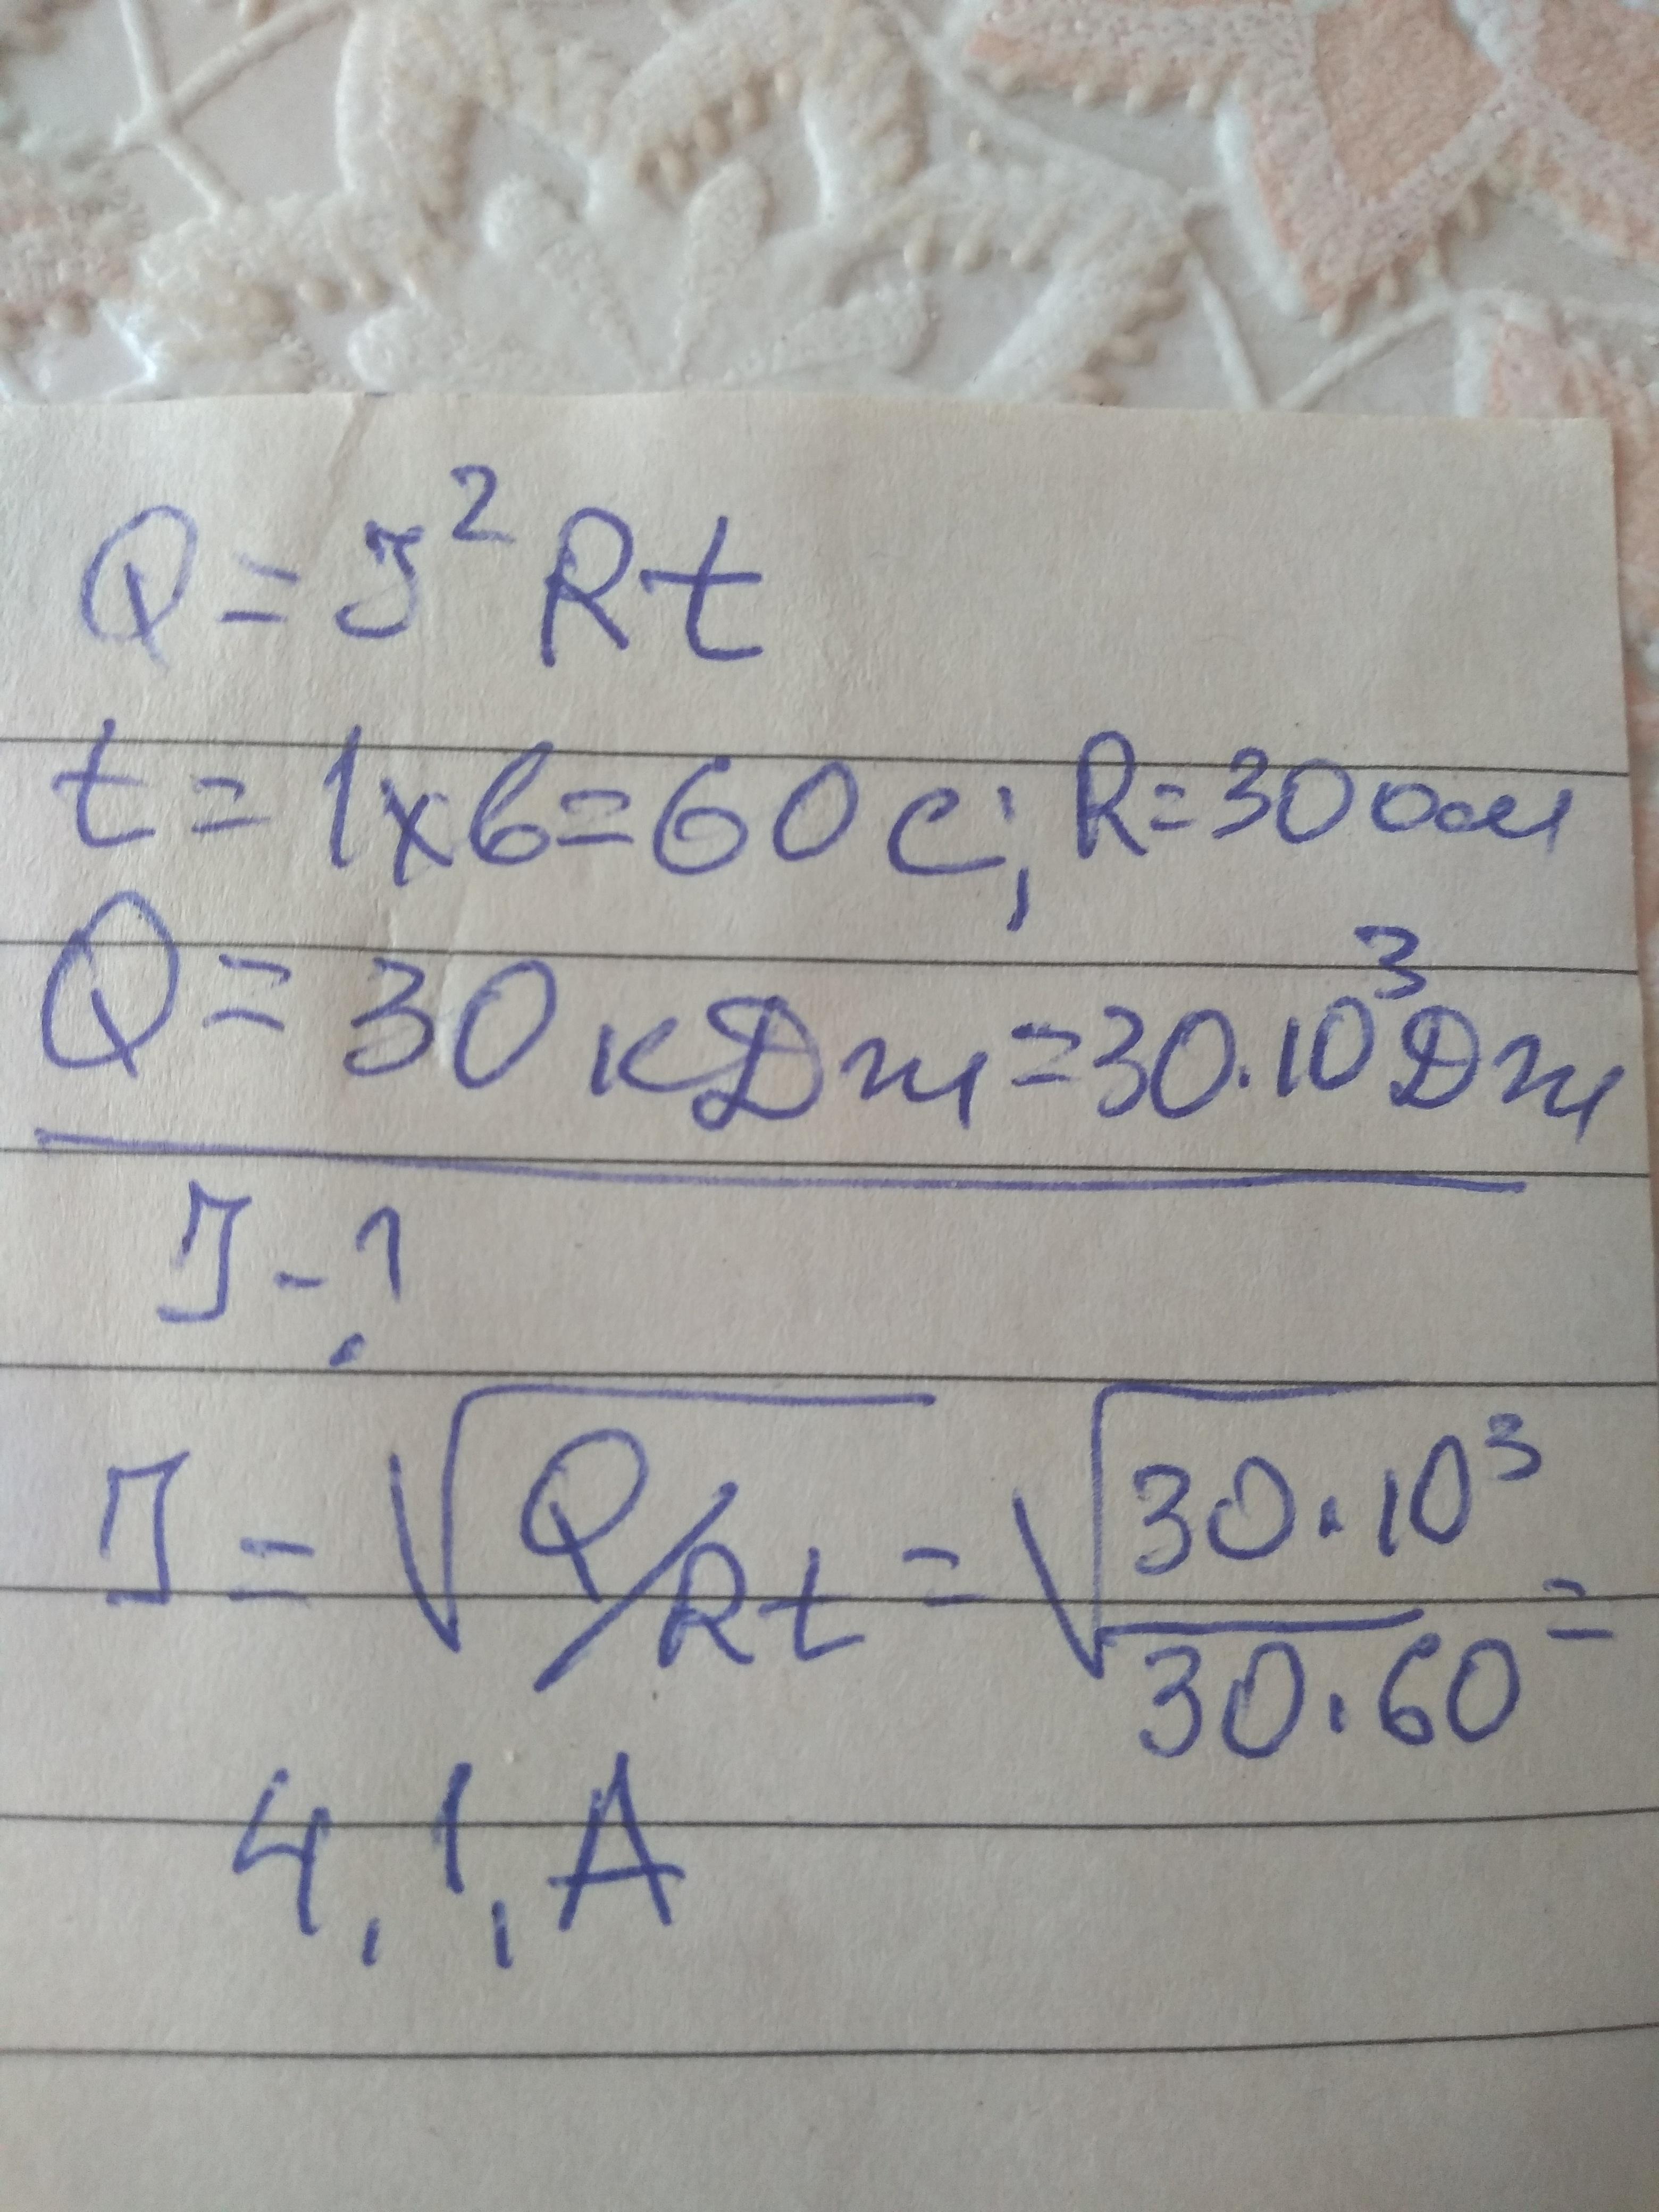 Q = J² Rt
t = 1x6=60 c; R=30 ом
Q = 30 кДж=30.10³ Дж
J - ?
J = √Q/Rt = √30·10³/30·60 =
4,1,A